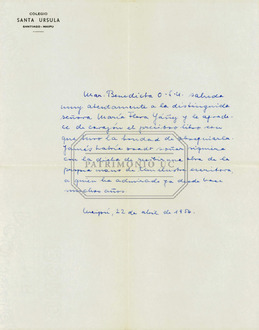 COLEGIO
SANTA URSULA
SANTIAGO - MAIPU
Mar. Benedicta O.S.U. saluda
muy atentamente a la distinguida
señora María Flora Yáñez y le agrade-
ce de corazón el precioso libro con
que tuvo la bondad de obsequiarla.
Jamás había osado soñar siquiera
con la dicha de recibir una obra de la
propia mano de la ilustre escritora,
a quien ha admirado ya desde hace
muchos años.
PATRIMONIO UC
Maipú, 22 de abril de 1956.